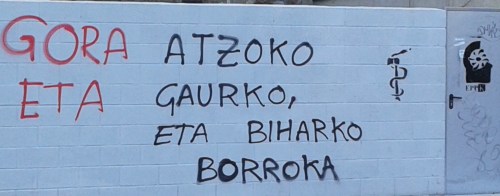 GORA ATZOKO
ETA GAURKO,
ETA BIHARKO
BORROKA